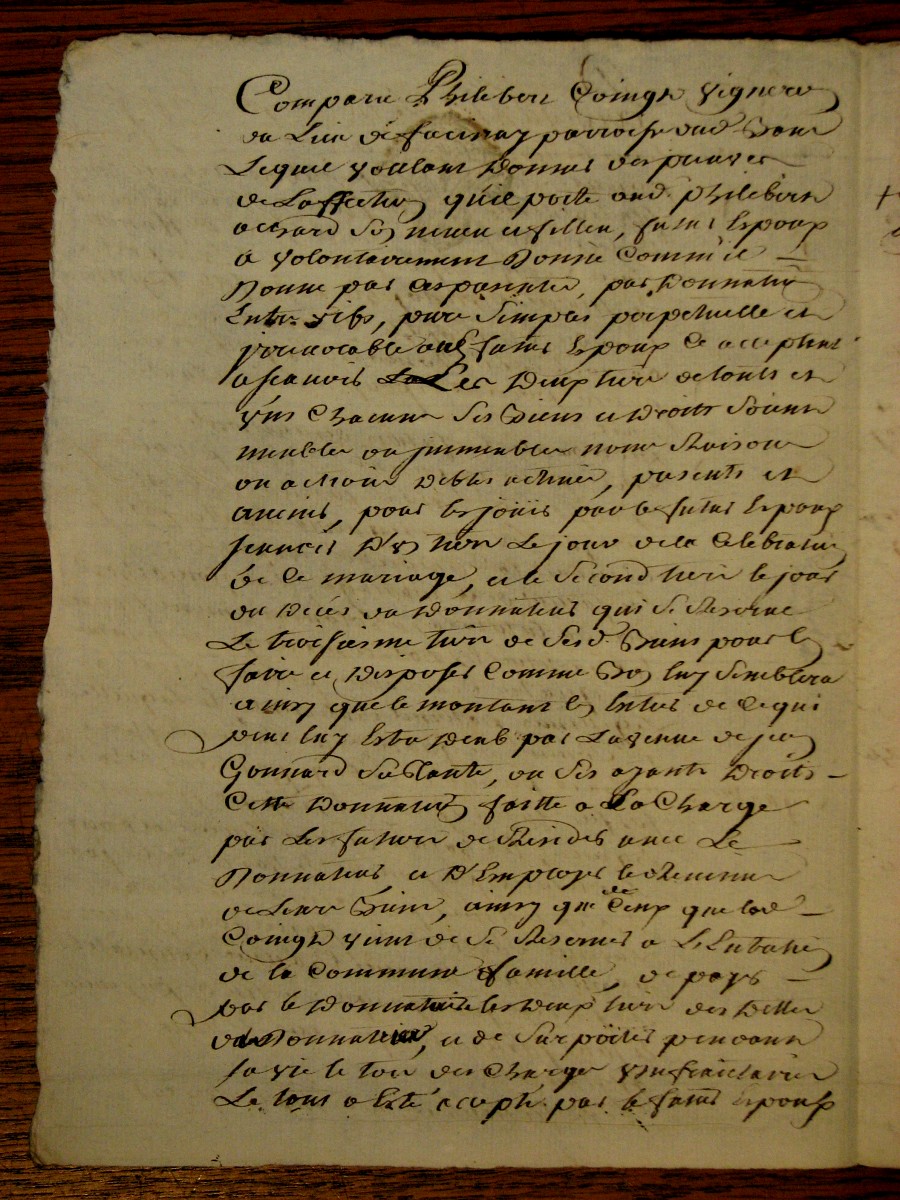 Comparu Philibert Coingt Vigneron
du Lieu de parroisse dud
Lequel voulant donner des preuves
de Laffection qu'il porte aud Philibert
achard son neveu et filleu, futur Epoux
a volontairement Donné Comme il
Donne par Ces presentes, par Donnation
Entre vifs, pure simple perpetuelle et
irrevocable aud futur Epoux Ce acceptant
a scavoir Les Deux tiers de touts et
uns chacuns ses Biens et Droits Soient
meubles ou immeubles noms Raisons
ou actions Debtes actives, presents et
avenir, pour les jouir par le futur Epoux
scavoir D'un tiers Le jour de la Celebration
de Ce mariage, et le second tiers le jour
du Décés du Donnateur qui se Reserve
Le troisiesme tiers de sesd Biens pour en
faire et Disposer Comme Bon luy semblera
ainsy que le montant en Entier de Ce qui
peut luy Estre Deub par La veuve de jean
Gonnard sa Tante, ou ses ayants Droits
Cette Donnation faitte a La Charge
par Les futurs de Resider avec Le
Donnateur, et D'Employer les Revenus
de Leurs Biens, ainsy que de Ceux que led
Coingt vient de se Reserver a L'Entretien
de la Commune famille, de payer
par le Donnataire les Deux tiers des Dettes
du Donnateur, et de Supporter pendant
sa vie le tout des Charges usufruictaires
Le tout a Esté accepté par le futur Epoux